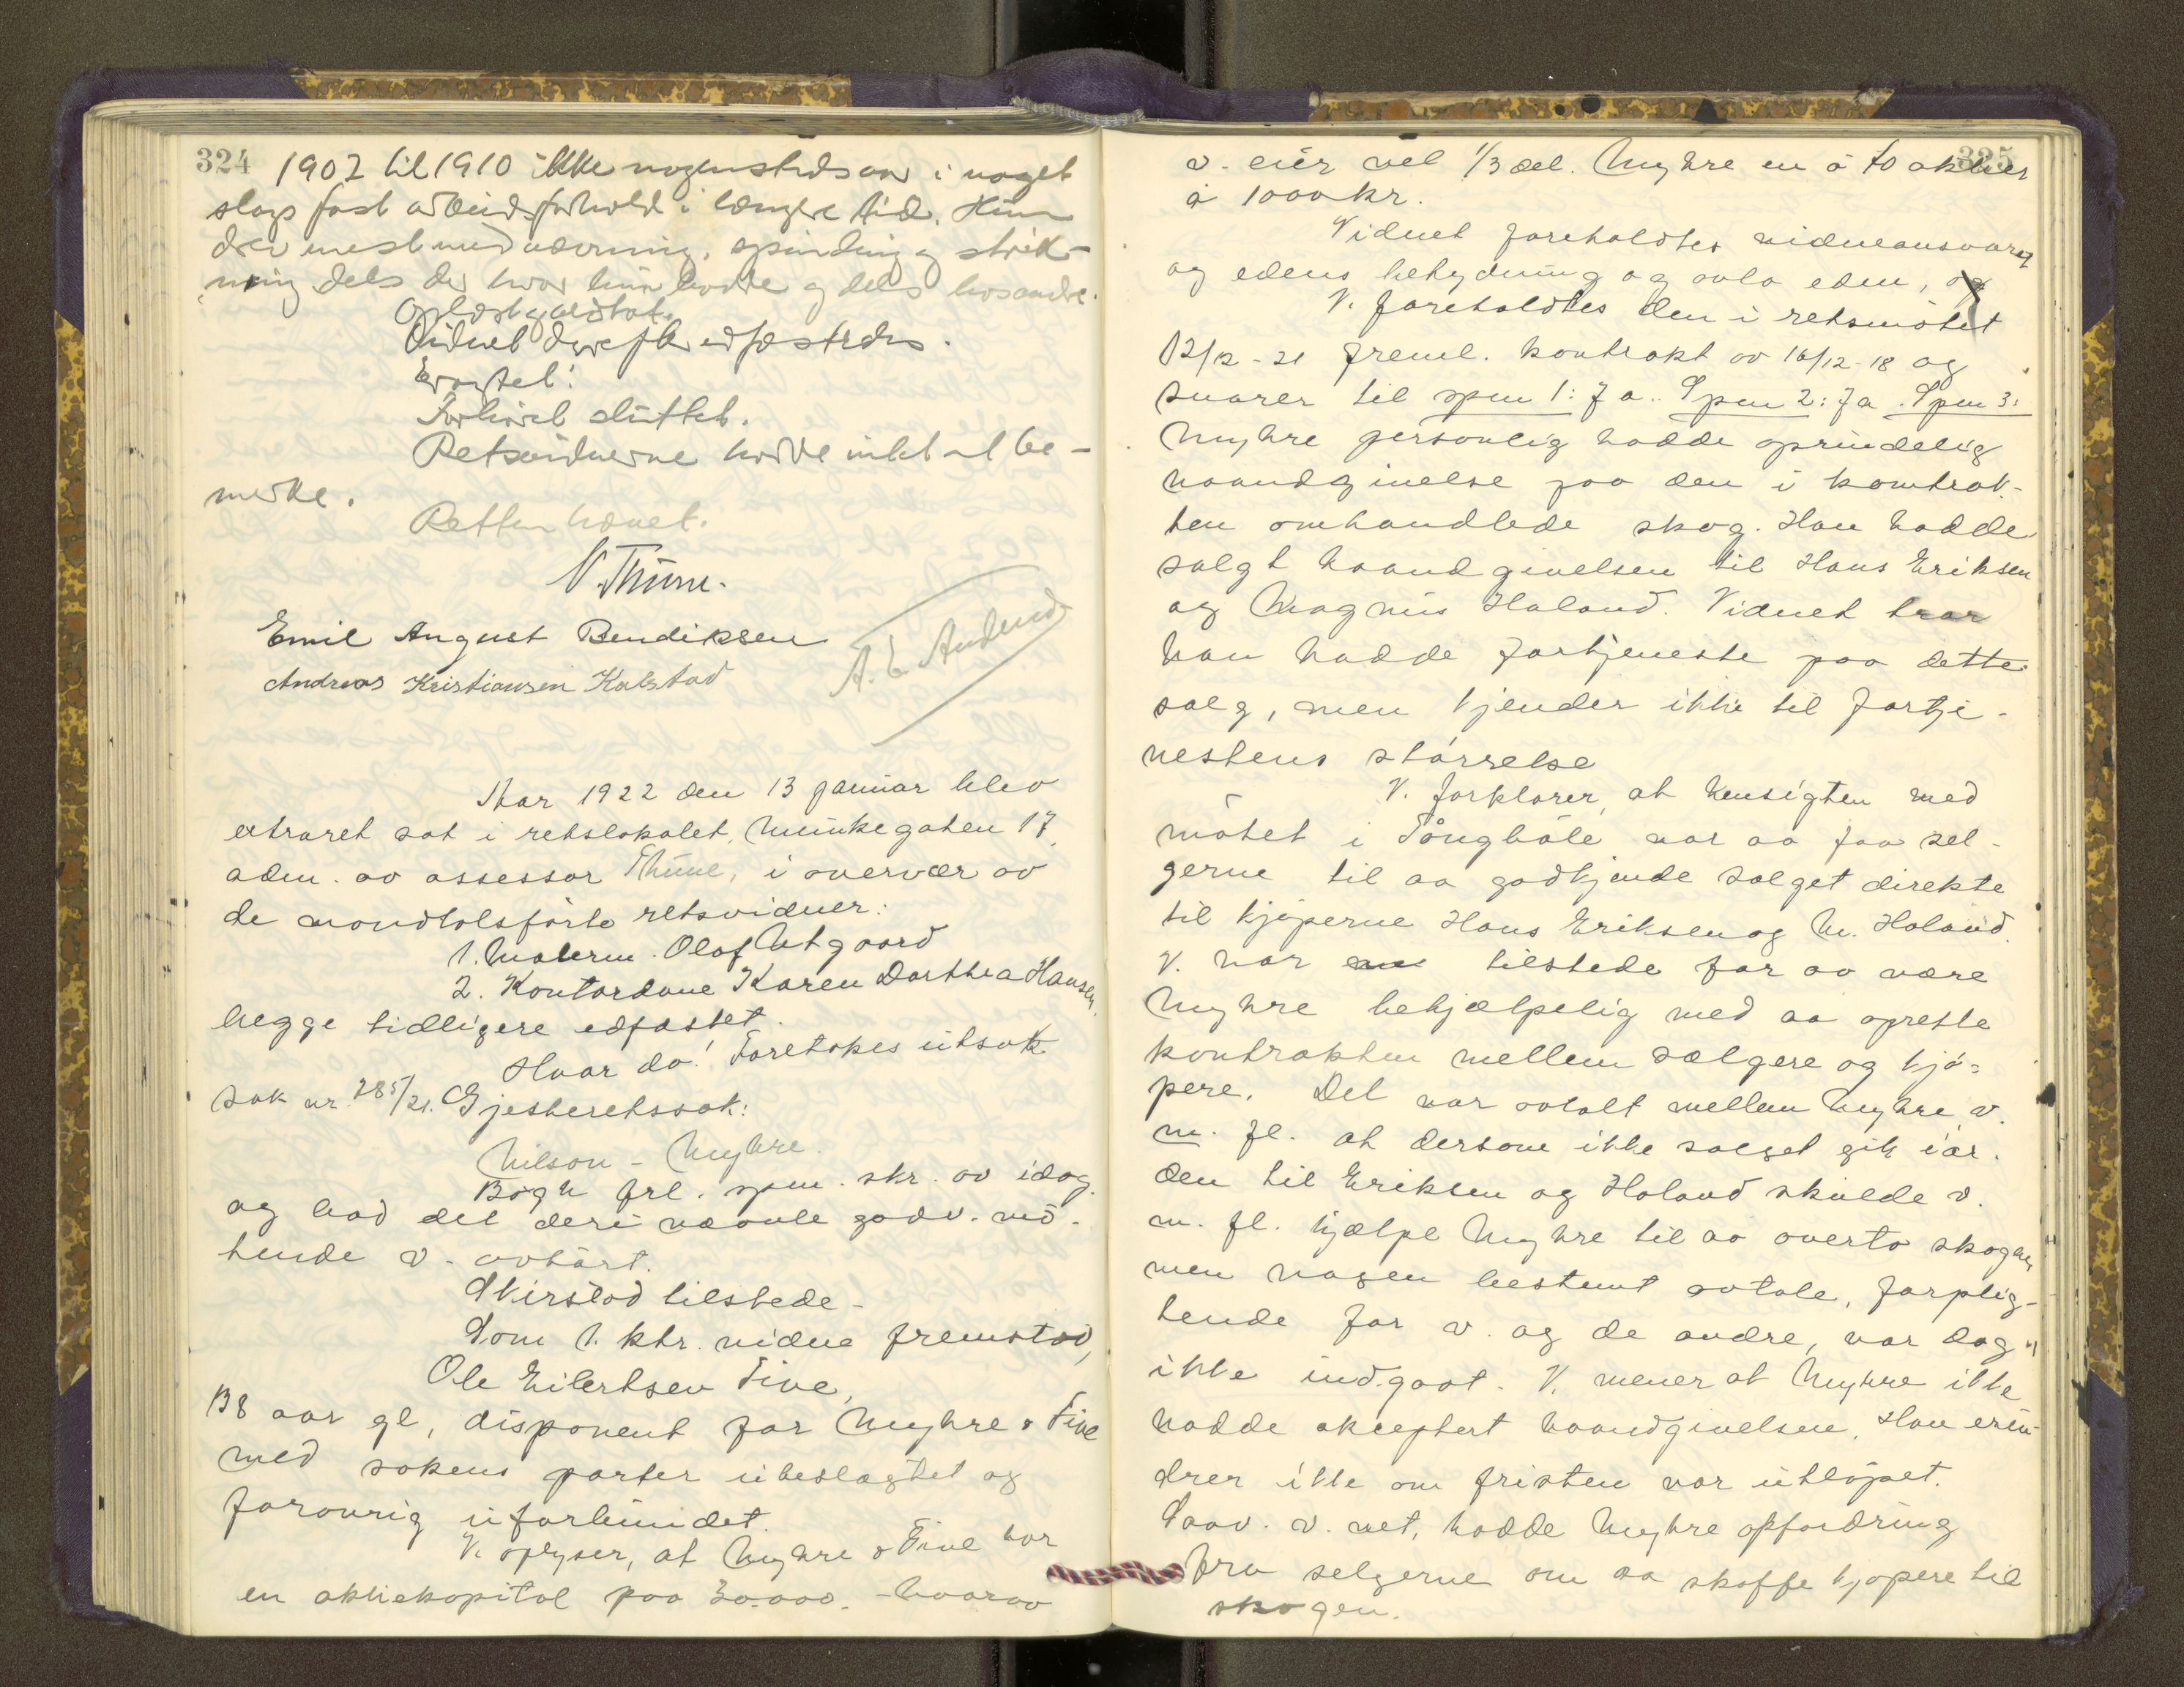 324
1902 til 1910 ikke nogensteds over i noget
slags fast arbeidsforhold i længere tid. Hun
drev mest med vævning, spinding og strik-
ning dels der hvor hun bodde og dels hos andre.
Oplæst og vedtat.
Vidnet derefter edfæstedes.
Fortsat:
Forhøret sluttet.
Retsvidnerne hadde intet at be-
merke.
Retten hævet.
N. Thüne.
Emil August Bendiksen
Andreas Kristiansen Kalstad
Aar 1922 den 13 januar blev
extraret sat i retslokalet, Munkegaten 17,
adm. av assessor Thüne, i overvær av
de mandtalsførte retsvidner:
1. Malerm. Olaf Utgaard
2. Kontordame Karen Dorthea Hansen,
begge tidligere edfæstet.
Hvor da! Foretokes utsat
sak nr. 285/21. Gjesteretssak:
Nilson - Myhre.
Bøgh frl. spm. skr. av idag
og bad det deri nævnte godv. mø-
tende v. avhørt.
Skirstad tilstede -
Som 1. ktr. vidne fremstod,
Ole Eilertsen Five,
38 aar gl, disponent for Myhre & Five
med sakens parter ubeslægtet og
forøvrig uforbundet.
V. oplyser, at Myhre & Five har
en aktiekapital paa 30.000.- hvorav
325
v. eier vel 1/3 del. Myhre en à to aktier
à 1000 kr.
Vidnet foreholdtes vidneansvaret
og edens betydning og avla eden, og
V. foreholdtes den i retsmøtet
12/12-21 freml. kontrakt av 16/12-18 og
svarer til spm 1: Ja. Spm 2: Ja. Spm 3:
Myhre personlig hadde oprindelig
haandgivelse paa den i kontrak-
ten omhandlede skog. Han hadde
solgt haandgivelsen til Hans Eriksen
og Magnus Haland. Vidnet tror
han hadde fortjeneste paa dette
salg, men kjender ikke til fortje-
nestens størrelse
V. forklarer, at hensigten med
møtet i Tångböle var aa faa sel-
gerne til aa godkjende salget direkte
til kjøperne Hans Eriksen og M. Haland.
V. var tilstede for aa være
Myhre behjælpelig med aa oprette
kontrakten mellem sælgere og kjø-
pere. Det var avtalt mellem Myhre, v.
m. fl. at dersom ikke salget gik i or-
den til Eriksen og Haland skulde v.
m. fl. hjælpe Myhre til aa overta skogen,
men nogen bestemt avtale, forplig-
tende for v. og de andre, var dog
ikke indgaat. V. mener at Myhre ikke
hadde akceptert haandgivelsen. Han erin-
drer ikke om fristen var utløpet.
Saav. v. vet, hadde Myhre opfordring
fra selgerne om aa skaffe kjøpere til
skogen.